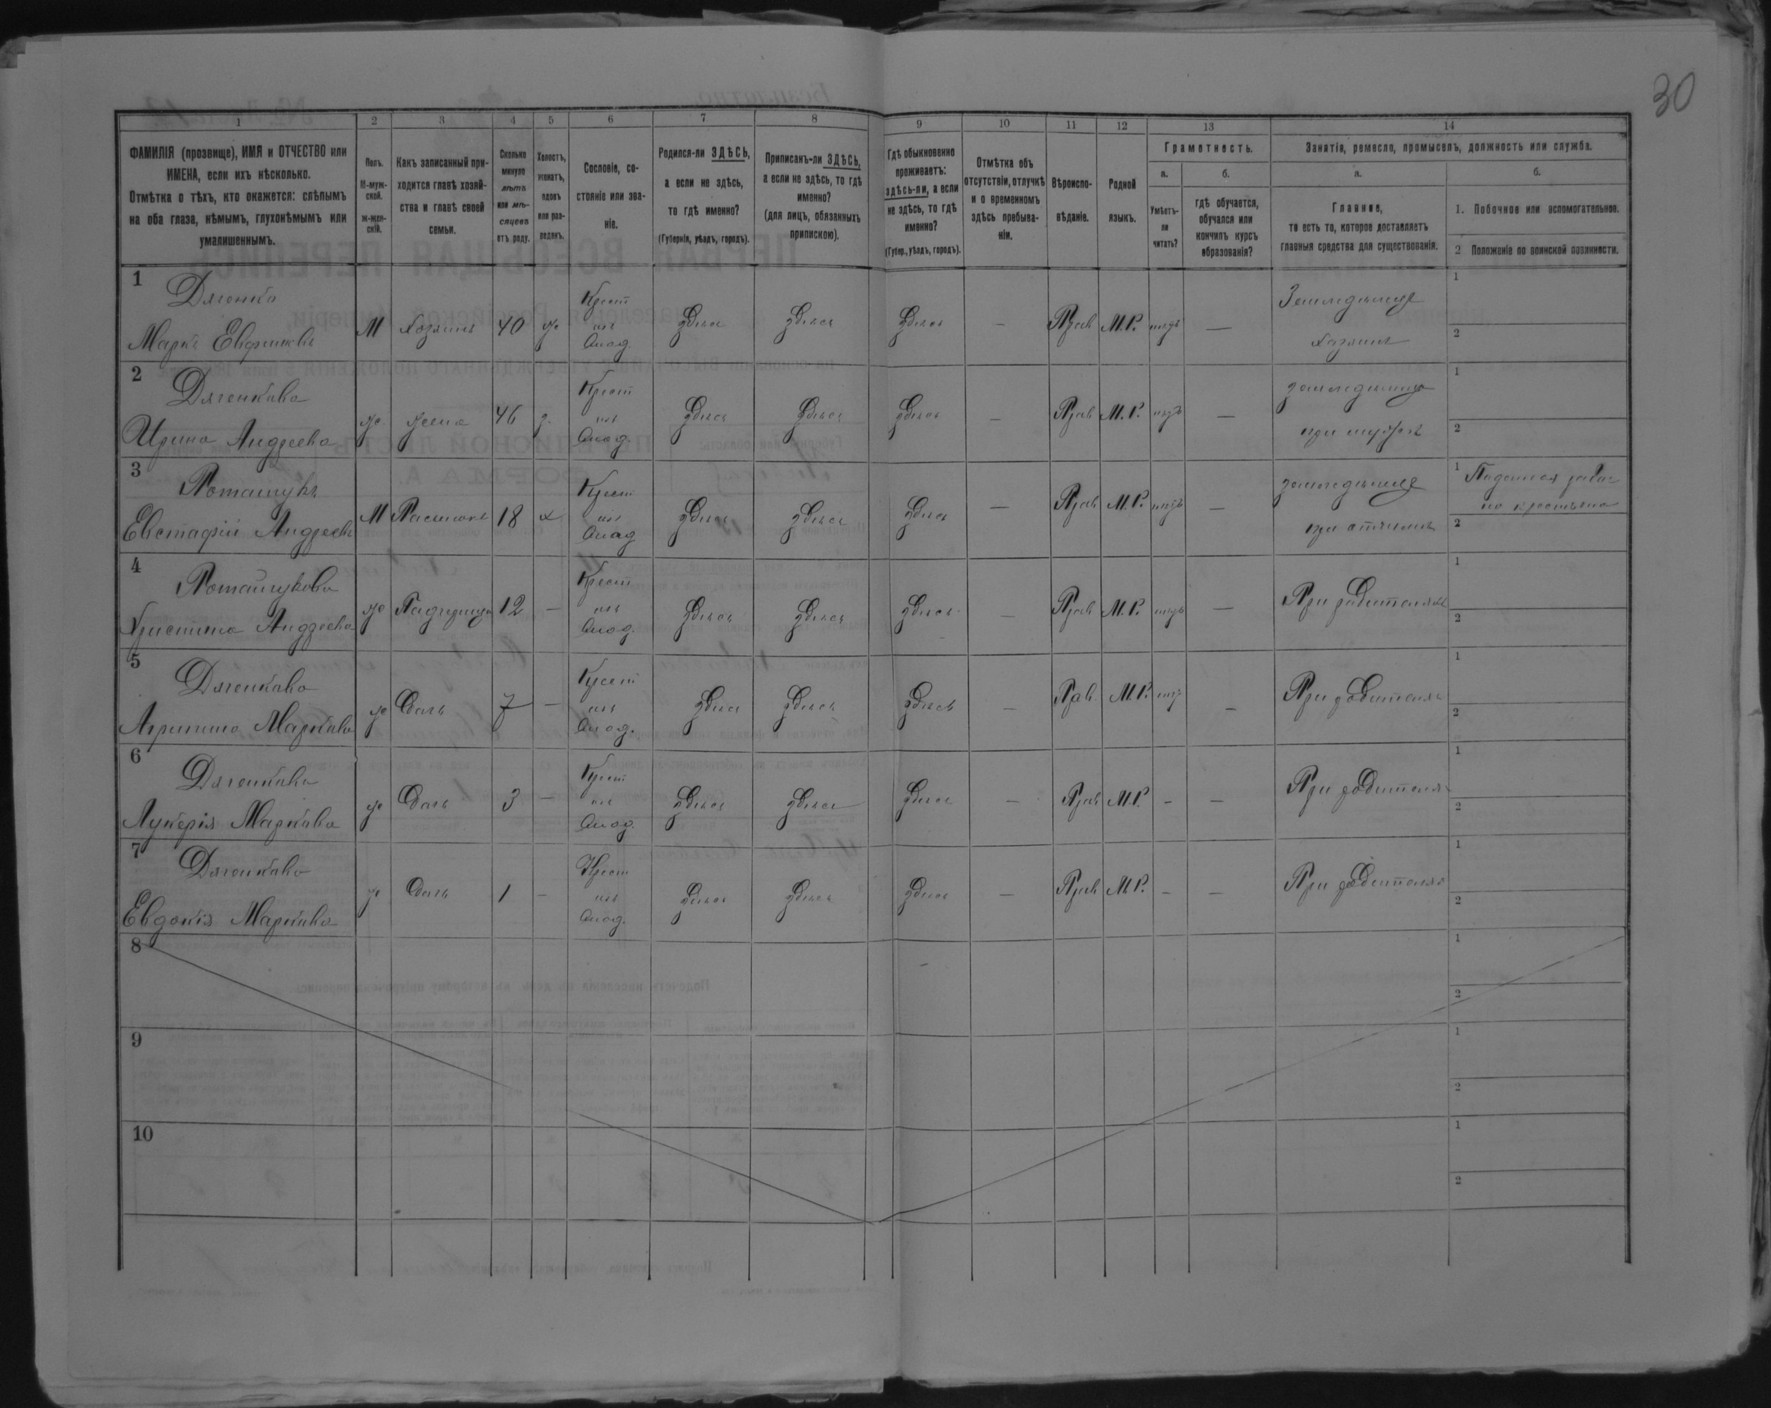 30
1 2 3 4 5 6 7 8 9 10 11 12 13 14
ФАМИЛІЯ (прозвище), ИМЯ и ОТЧЕСТВО или
ИМЕНА, если ихъ нѣсколько.
Отмѣтка о тѣхъ, кто окажется: слѣпымъ
на оба глаза, нѣмымъ, глухонѣмымъ или
умалишеннымъ.
Полъ.
М-муж-
ской.
Ж-жен-
скій.
Какъ записанный при-
ходится главѣ хозяй-
ства и главѣ своей
семьи.
Сколько
минуло
лѣтъ
или мѣ-
сяцевъ
отъ роду.
Холостъ,
женатъ,
вдовъ
или раз-
веденъ.
Сословіе, со-
стояніе или зва-
ніе.
Родился-ли ЗДѢСЬ,
а если не здѣсь,
то гдѣ именно?
(Губернія, уѣздъ, городъ).
Приписанъ-ли ЗДѢСЬ,
а если не здѣсь, то гдѣ
именно?
(для лицъ, обязанныхъ
припискою).
Гдѣ обыкновенно
проживаетъ:
здѣсь-ли, а если
не здѣсь, то гдѣ
именно?
(Губер., уѣздъ, городъ).
Отмѣтка объ
отсутствіи, отлучкѣ
и о временномъ
здѣсь пребыва-
ніи.
Вѣроиспо-
вѣданіе.
Родной
языкъ.
Грамотность.
а.
Умѣетъ-
ли
читать?
б.
гдѣ обучается,
обучался или
кончилъ курсъ
образованія?
Занятія, ремесло, промыселъ, должность или служба.
а.
Главное,
то есть то, которое доставляетъ
главныя средства для существованія.
б.
1. Побочное или вспомогательное.
2 Положеніе по воинской повинности.
1
Дяченко
Маркъ М хозяинъ 40 ж Крест здѣсь здѣсь здѣсь — Прав М.Р. нѣтъ — Земледѣлие
хозяинъ
1
2
2
Дяченкова
Ирина Андреева ж жена 46 з. Крест здѣсь здѣсь здѣсь — Прав М.Р. нѣтъ — земледѣлие
при мужѣ
1
2
3
Ромащукъ
Евстафій Андреевъ М Пасынокъ 18 х Крест здѣсь здѣсь здѣсь — Прав М.Р. нѣтъ земледѣлие
при отчимѣ
1
2
4
Ромащукова
Христина Андреева ж Падчерица 12 — Крест здѣсь здѣсь здѣсь — Прав М.Р. нѣтъ — При родителяхъ
1
2
5
Дяченкова
Маркова ж Дочь 7 — Крест здѣсь здѣсь здѣсь Прав М.Р. нѣтъ — При родителяхъ
1
2
6
Дяченкова
Лукерія Маркова ж Дочь 3 — Крест здѣсь здѣсь здѣсь — Прав М.Р. — — При родителяхъ
1
2
7
Дяченкова
Евдокія Маркова ж Дочь 1 — Крест здѣсь здѣсь здѣсь — Прав М.Р. — — При родителяхъ
1
2
8
1
2
9
1
2
10
1
2